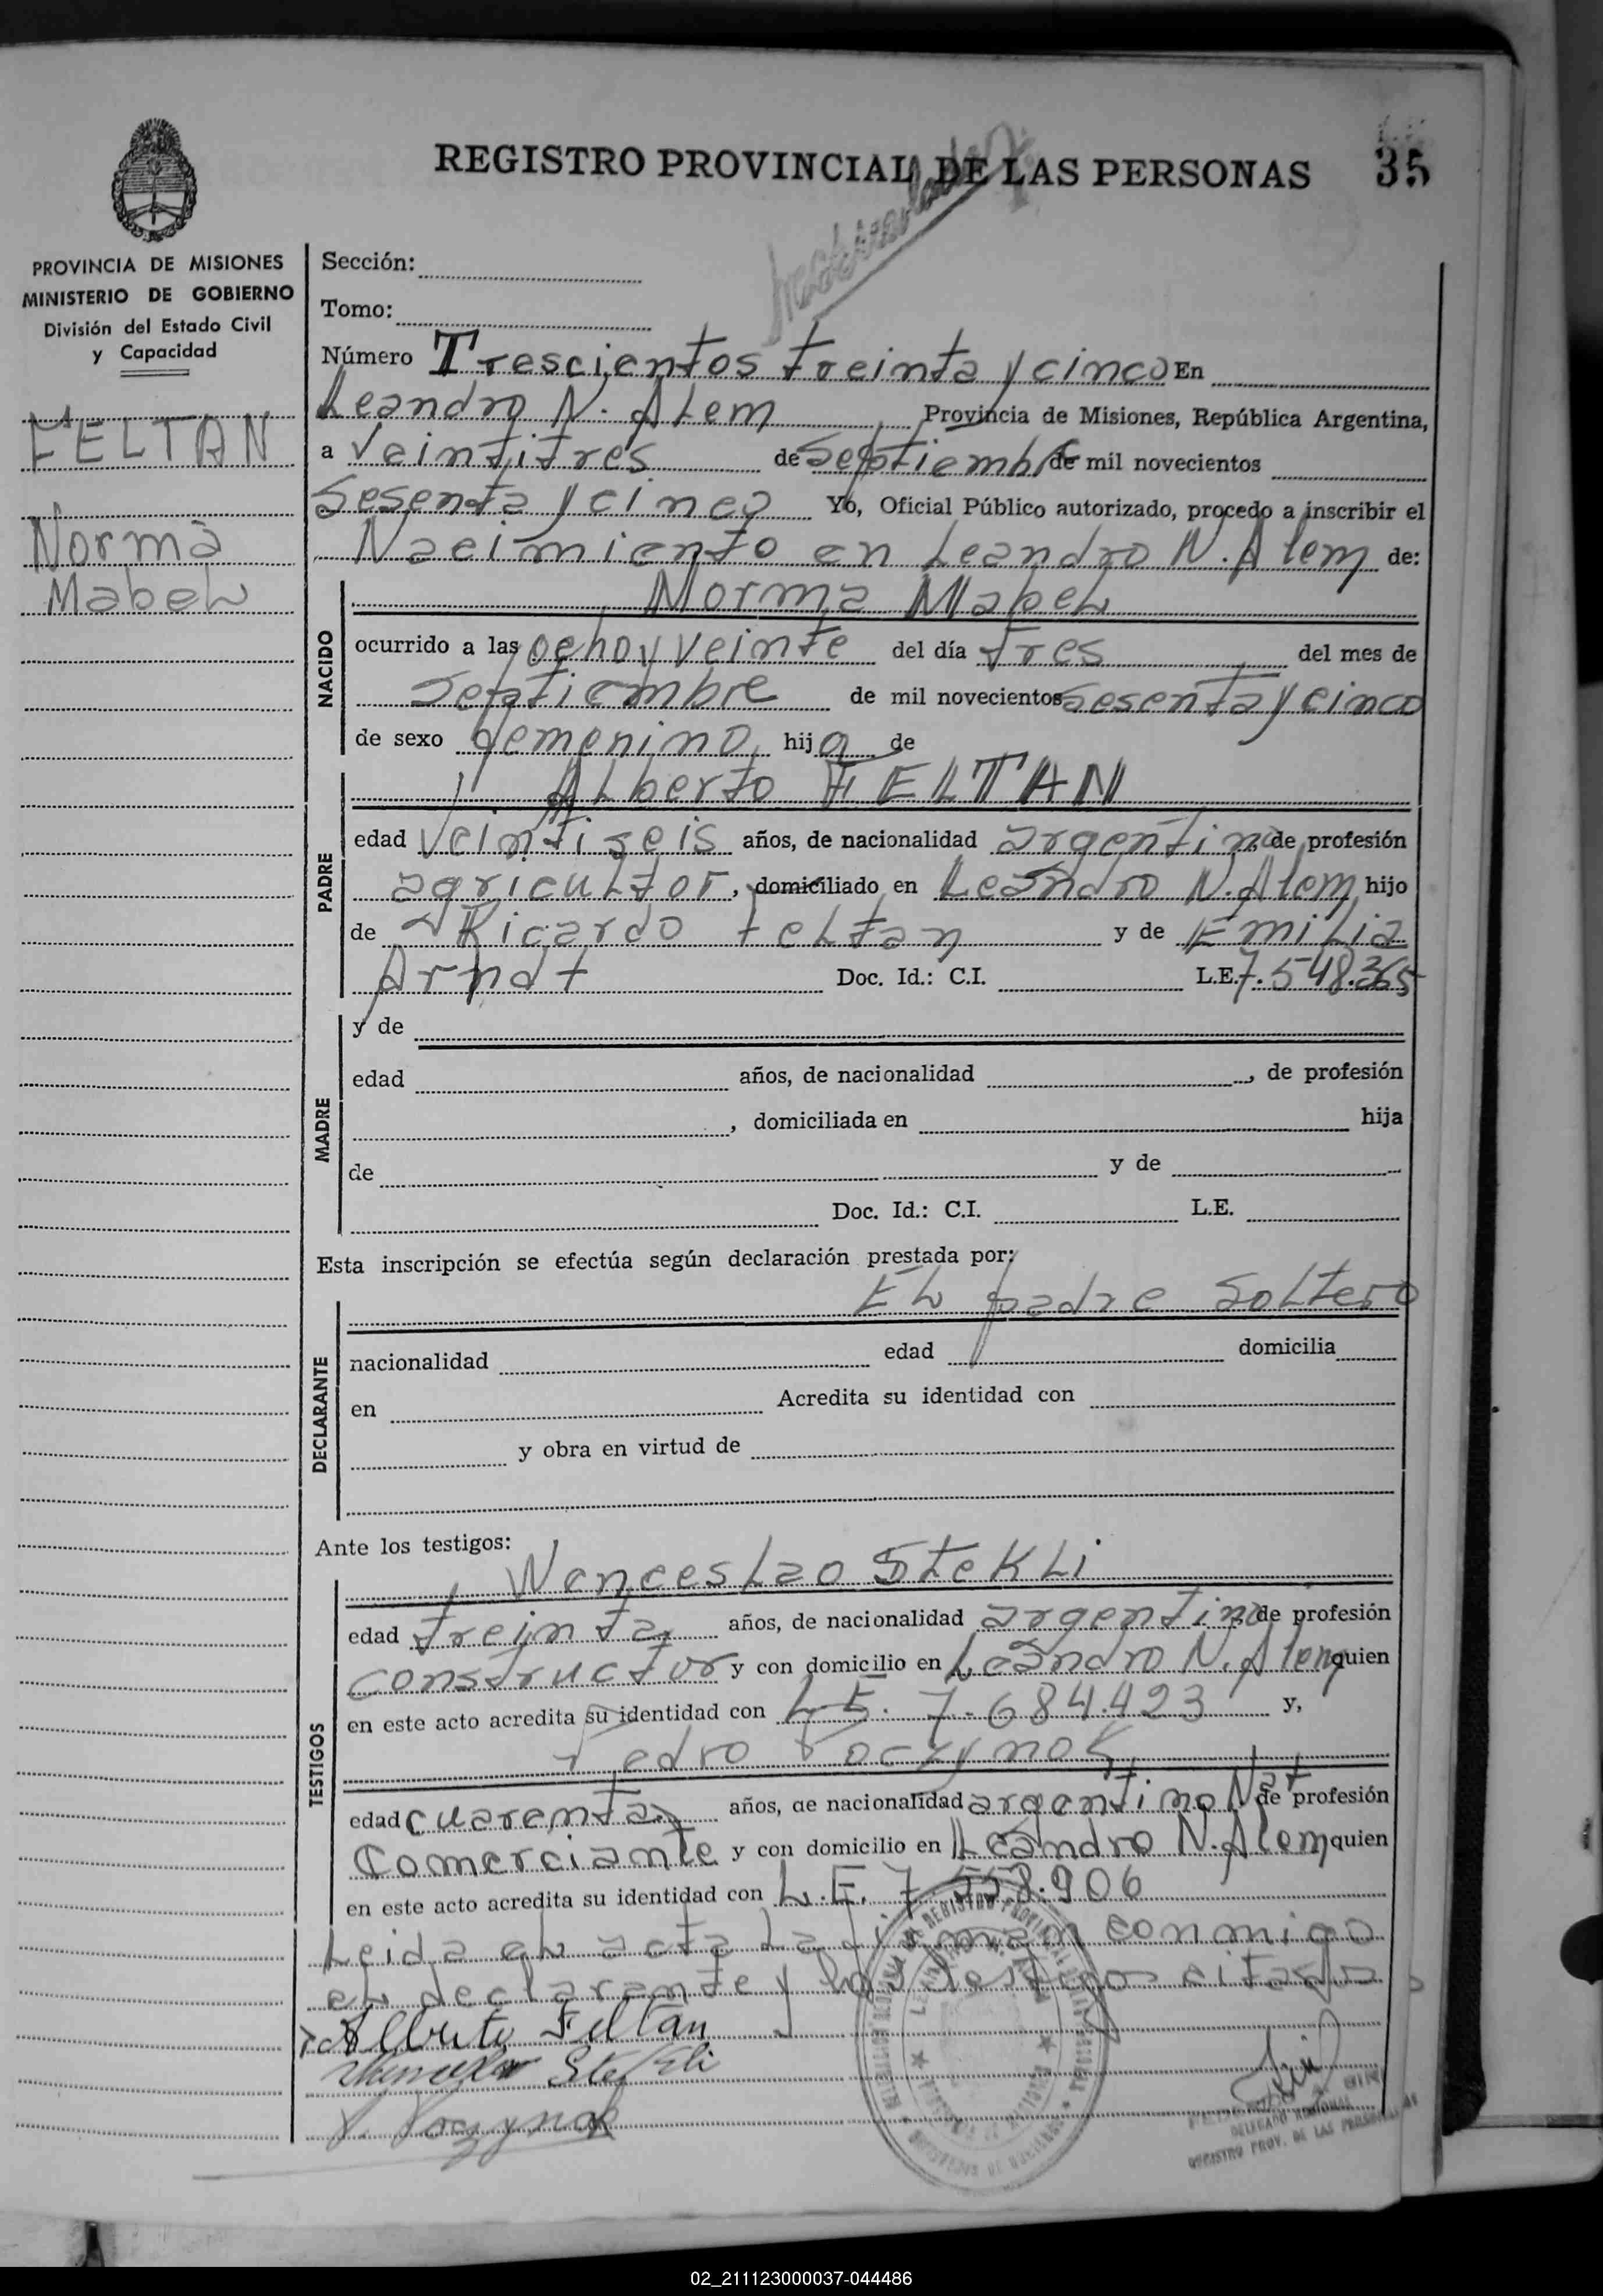 REGISTRO PROVINCIAL DE LAS PERSONAS
35
PROVINCIA DE MISIONES
MINISTERIO DE GOBIERNO
División del Estado Civil
y Capacidad
FELTAN
Norma
Mabel
Sección:
Tomo:
Número Trescientos treinta y cinco En
Leandro N. Alem Provincia de Misiones, República Argentina,
a Veintitres de Septiembre de mil novecientos
Sesenta y cinco Yo, Oficial Público autorizado, procedo a inscribir el
Nacimiento en Leandro N. Alem de:
NACIDO
Norma Mabel
ocurrido a las ocho y veinte del día tres del mes de
Septiembre de mil novecientos Sesenta y cinco
de sexo femenino hija de
PADRE
Alberto FELTAN
edad Veintiseis años, de nacionalidad argentina, de profesión
agricultor, domiciliado en Leandro N. Alem hijo
de Ricardo Feltan y de Emilia
Arndt Doc. Id.: C.I. L.E. 7.548.365
MADRE
y de
edad años, de nacionalidad , de profesión
, domiciliada en hija
de y de
Doc. Id.: C.I. L.E.
Esta inscripción se efectúa según declaración prestada por:
DECLARANTE
El padre Soltero
nacionalidad edad domicilia
en Acredita su identidad con
y obra en virtud de
Ante los testigos:
TESTIGOS
Wenceslao Stekli
edad treinta años, de nacionalidad argentina, de profesión
constructor y con domicilio en Leandro N. Alem quien
en este acto acredita su identidad con L.E. 7.684.423 y,
Pedro Poczynok
edad cuarenta años, de nacionalidad argentino Nat de profesión
Comerciante y con domicilio en Leandro N. Alem quien
en este acto acredita su identidad con L.E. 7.558.906
Leida el acta la firman conmigo
el declarante y los testigos citados
Alberto Feltan
Stekli
P. Poczynok
DELEGADO REGIONAL
REGISTRO PROV. DE LAS PERSONAS
02_211123000037-044486